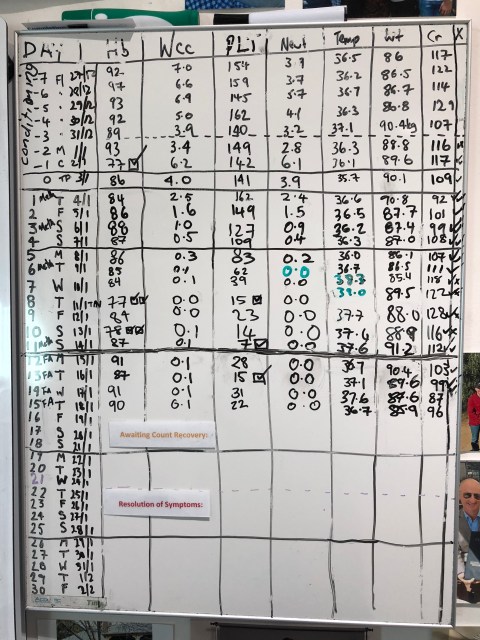 Day Hb Wcc Plt Neut Temp Wt Cr X
Conditioning
-7 27/12 92 7.0 154 3.9 36.5 86 117
-6 28/12 97 6.6 159 3.7 36.2 86.5 122
-5 29/12 93 6.9 145 5.7 36.7 86.7 114
-4 30/12 95 5.0 162 4.1 36.3 86.8 129
-3 31/12 89 3.9 140 3.2 37.1 90.4kg 107
-2 M 1/1 93 3.4 149 2.8 36.3 88.8 116
-1 C 2/1 77 6.2 142 6.1 36.1 89.6 117
0 TP 3/1 86 4.0 141 3.9 35.7 90.1 109
1 Meth T 4/1 84 2.5 162 2.4 36.6 90.8 92
2 F 5/1 86 1.6 149 1.5 36.5 87.7 101
3 Meth S 6/1 88 1.0 127 0.9 36.2 87.4 99
4 S 7/1 87 0.5 109 0.4 36.3 87.0 108
5 M 8/1 86 0.3 83 0.2 36.0 86.1 107
6 Meth T 9/1 85 0.1 62 0.0 36.7 86.5 111
7 W 10/1 84 0.1 39 0.0 85.4 118
8 T 11/1 77 0.0 15 0.0 39.0 89.5 122
9 F 12/1 84 0.0 23 0.0 37.7 88.0 128
10 S 13/1 78 0.1 14 0.0 37.4 88.9 116
11 Meth S 14/1 87 0.1 7 0.0 37.6 91.2 112
12 FA M 15/1 91 0.1 28 0.0 36.7 90.4 103
13 FA T 16/1 87 0.1 15 0.0 37.1 89.6 99
14 FA W 17/1 91 0.1 31 0.0 37.6 87.6 87
15 FA T 18/1 90 0.1 22 0.0 36.7 85.9 96
16 F 19/1
17 S 20/1
Awaiting Count Recovery:
18 S 21/1
19 M 22/1
20 T 23/1
21 W 24/1
22 T 25/1
23 F 26/1
Resolution of Symptoms:
24 S 27/1
25 S 28/1
26 M 29/1
27 T 30/1
28 W 31/1
29 T 1/2
30 F 2/2